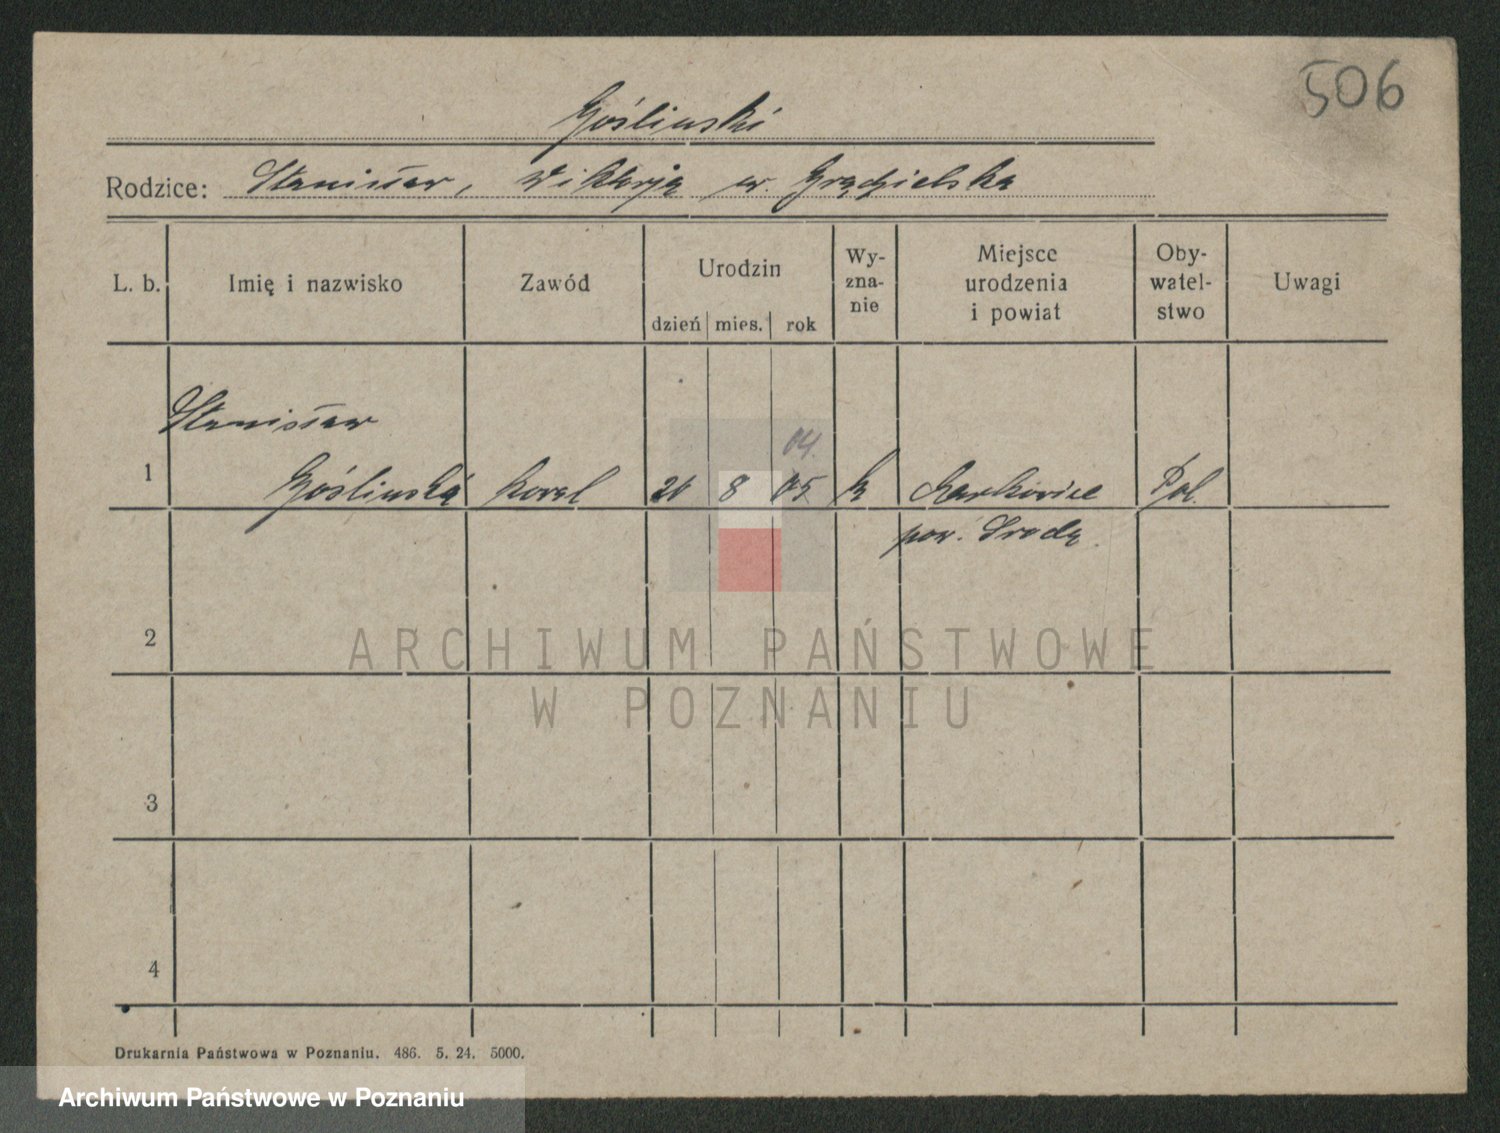 506
Gośliński
Rodzice: Stanisław, Wiktorja ur. Grądzielska
L. b. Imię i nazwisko Zawód Urodzin dzień mies. rok Wy-zna-nie Miejsce urodzenia i powiat Oby-watel-stwo Uwagi
Stanisław
04.
1 Gośliński kowal 20 8 05 k Markowice Pol.
pow. Środa
2
ARCHIWUM PAŃSTWOWE
W POZNANIU
3
4
Drukarnia Państwowa w Poznaniu. 486. 5. 24. 5000.
Archiwum Państwowe w Poznaniu